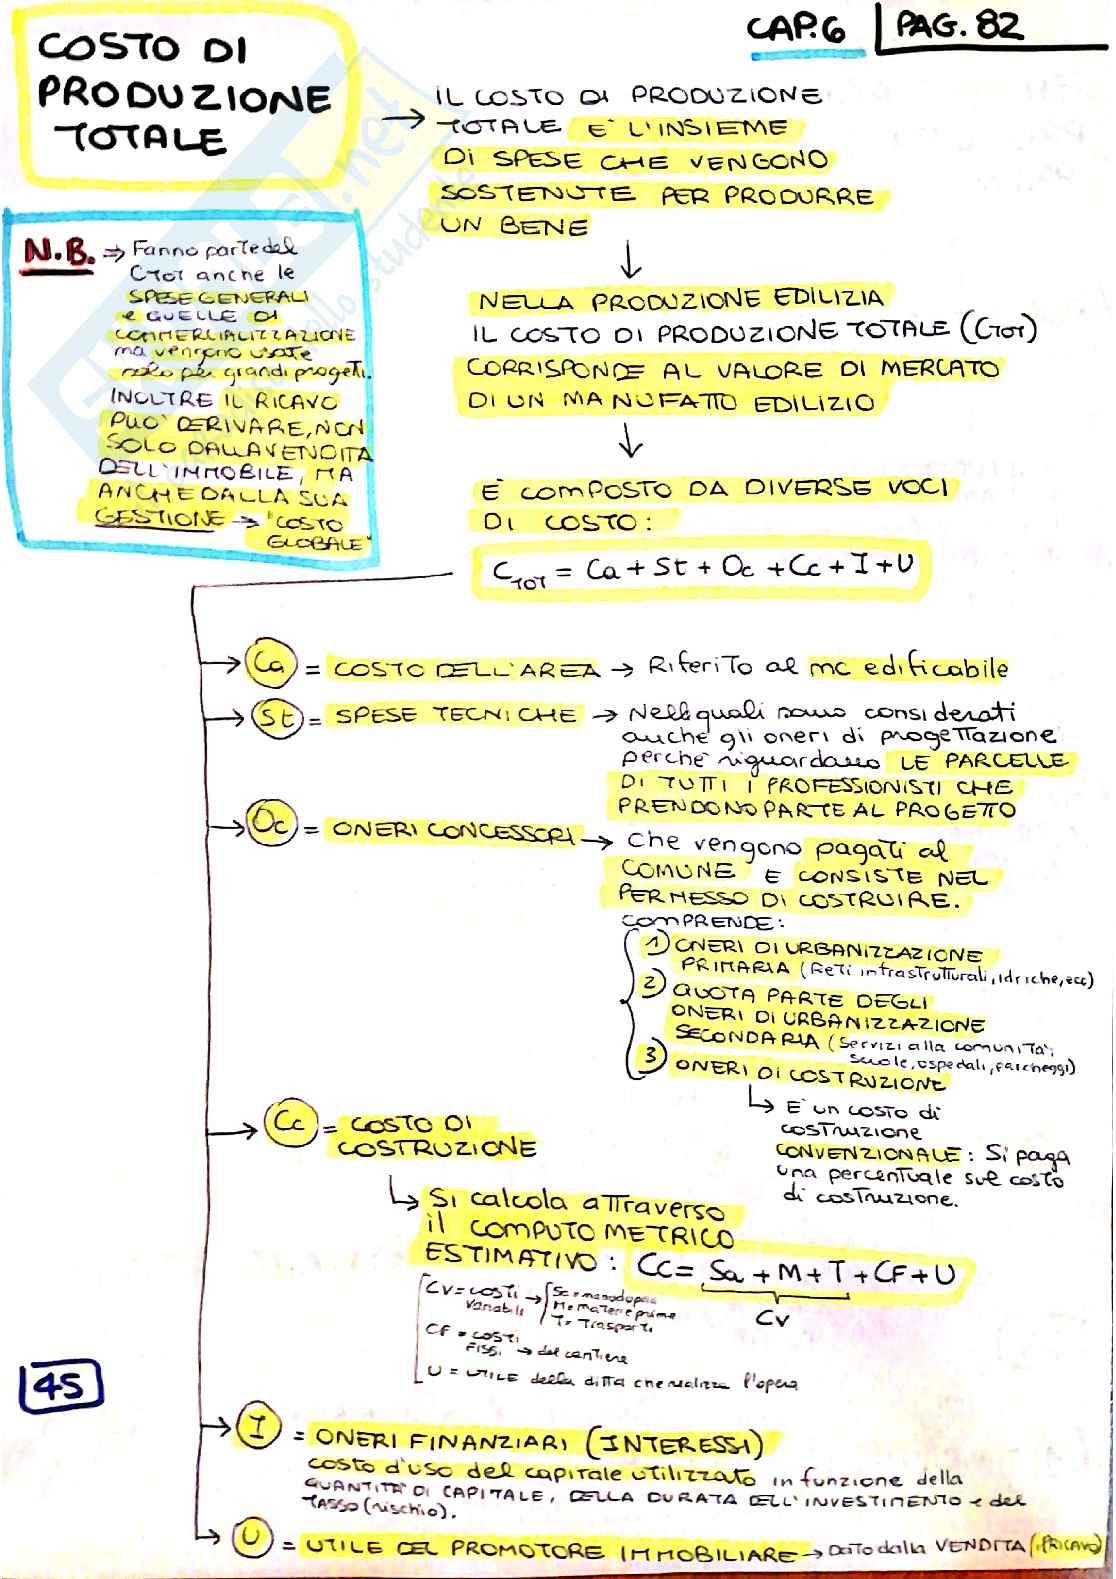 CAP.6 | PAG. 82
COSTO DI
PRODUZIONE
TOTALE
→ IL COSTO DI PRODUZIONE
TOTALE E' L'INSIEME
DI SPESE CHE VENGONO
SOSTENUTE PER PRODURRE
UN BENE
N.B. ⇒ Fanno parte del
CTOT anche le
SPESE GENERALI
e QUELLE DI
COMMERCIALIZZAZIONE
ma vengono usate
solo per grandi progetti.
INOLTRE IL RICAVO
PUO' DERIVARE, NON
SOLO DALLA VENDITA
DELL'IMMOBILE, MA
ANCHE DALLA SUA
GESTIONE → "COSTO
GLOBALE"
NELLA PRODUZIONE EDILIZIA
IL COSTO DI PRODUZIONE TOTALE (CTOT)
CORRISPONDE AL VALORE DI MERCATO
DI UN MANUFATTO EDILIZIO
E' COMPOSTO DA DIVERSE VOCI
DI COSTO:
CTOT = Ca + St + Oc + Cc + I + U
Ca = COSTO DELL'AREA → Riferito al mc edificabile
St = SPESE TECNICHE → Nelle quali sono considerati
anche gli oneri di progettazione
perche' riguardano LE PARCELLE
DI TUTTI I PROFESSIONISTI CHE
PRENDONO PARTE AL PROGETTO
Oc = ONERI CONCESSORI → che vengono pagati al
COMUNE E CONSISTE NEL
PERMESSO DI COSTRUIRE.
COMPRENDE:
1) ONERI DI URBANIZZAZIONE
PRIMARIA (Reti infrastrutturali, idriche, ecc)
2) QUOTA PARTE DEGLI
ONERI DI URBANIZZAZIONE
SECONDARIA (Servizi alla comunita':
scuole, ospedali, parcheggi)
3) ONERI DI COSTRUZIONE
↳ E' un costo di
costruzione
CONVENZIONALE: Si paga
una percentuale sul costo
di costruzione.
Cc = COSTO DI
COSTRUZIONE
↳ Si calcola attraverso
il COMPUTO METRICO
ESTIMATIVO: CC = Sa + M + T + CF + U
Cv
CV = costi variabili → Sa = manodopera
M = materie prime
T = Trasporti
CF = costi
FISSI → del cantiere
U = UTILE della ditta che realizza l'opera
45
I = ONERI FINANZIARI (INTERESSI)
costo d'uso del capitale utilizzato in funzione della
QUANTITA' DI CAPITALE, DELLA DURATA DELL'INVESTIMENTO e del
TASSO (rischio).
U = UTILE DEL PROMOTORE IMMOBILIARE → Dato dalla VENDITA (RICAVO)